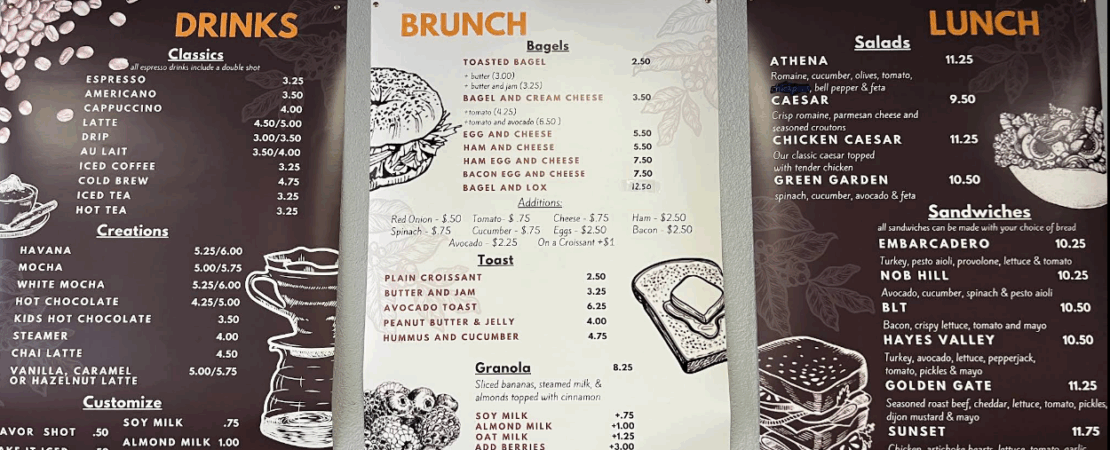 DRINKS
Classics
all espresso drinks include a double shot
ESPRESSO 3.25
AMERICANO 3.50
CAPPUCCINO 4.00
LATTE 4.50/5.00
DRIP 3.00/3.50
AU LAIT 3.50/4.00
ICED COFFEE 3.25
COLD BREW 4.75
ICED TEA 3.25
HOT TEA 3.25
Creations
HAVANA 5.25/6.00
MOCHA 5.00/5.75
WHITE MOCHA 5.25/6.00
HOT CHOCOLATE 4.25/5.00
KIDS HOT CHOCOLATE 3.50
STEAMER 4.00
CHAI LATTE 4.50
VANILLA, CARAMEL 5.00/5.75
OR HAZELNUT LATTE
Customize
AVOR SHOT .50
SOY MILK .75
ALMOND MILK 1.00
BRUNCH
Bagels
TOASTED BAGEL 2.50
+ butter (3.00)
+ butter and jam (3.25)
BAGEL AND CREAM CHEESE 3.50
+tomato (4.25)
+tomato and avocado (6.50)
EGG AND CHEESE 5.50
HAM AND CHEESE 5.50
HAM EGG AND CHEESE 7.50
BACON EGG AND CHEESE 7.50
BAGEL AND LOX 12.50
Additions:
Red Onion - $.50 Tomato- $ .75 Cheese - $.75 Ham - $2.50
Spinach - $.75 Cucumber - $.75 Eggs - $2.50 Bacon - $2.50
Avocado - $2.25 On a Croissant +$1
Toast
PLAIN CROISSANT 2.50
BUTTER AND JAM 3.25
AVOCADO TOAST 6.25
PEANUT BUTTER & JELLY 4.00
HUMMUS AND CUCUMBER 4.75
Granola 8.25
Sliced bananas, steamed milk, &
almonds topped with cinnamon
SOY MILK +.75
ALMOND MILK +1.00
OAT MILK +1.25
ADD BERRIES +3.00
LUNCH
Salads
ATHENA 11.25
Romaine, cucumber, olives, tomato,
, bell pepper & feta
CAESAR 9.50
Crisp romaine, parmesan cheese and
seasoned croutons
CHICKEN CAESAR 11.25
Our classic caesar topped
with tender chicken
GREEN GARDEN 10.50
spinach, cucumber, avocado & feta
Sandwiches
all sandwiches can be made with your choice of bread
EMBARCADERO 10.25
Turkey, pesto aioli, provolone, lettuce & tomato
NOB HILL 10.25
Avocado, cucumber, spinach & pesto aioli
BLT 10.50
Bacon, crispy lettuce, tomato and mayo
HAYES VALLEY 10.50
Turkey, avocado, lettuce, pepperjack,
tomato, pickles & mayo
GOLDEN GATE 11.25
Seasoned roast beef, cheddar, lettuce, tomato, pickles,
dijon mustard & mayo
SUNSET 11.75
Chicken, artichoke hearts, lettuce, tomato, garlic